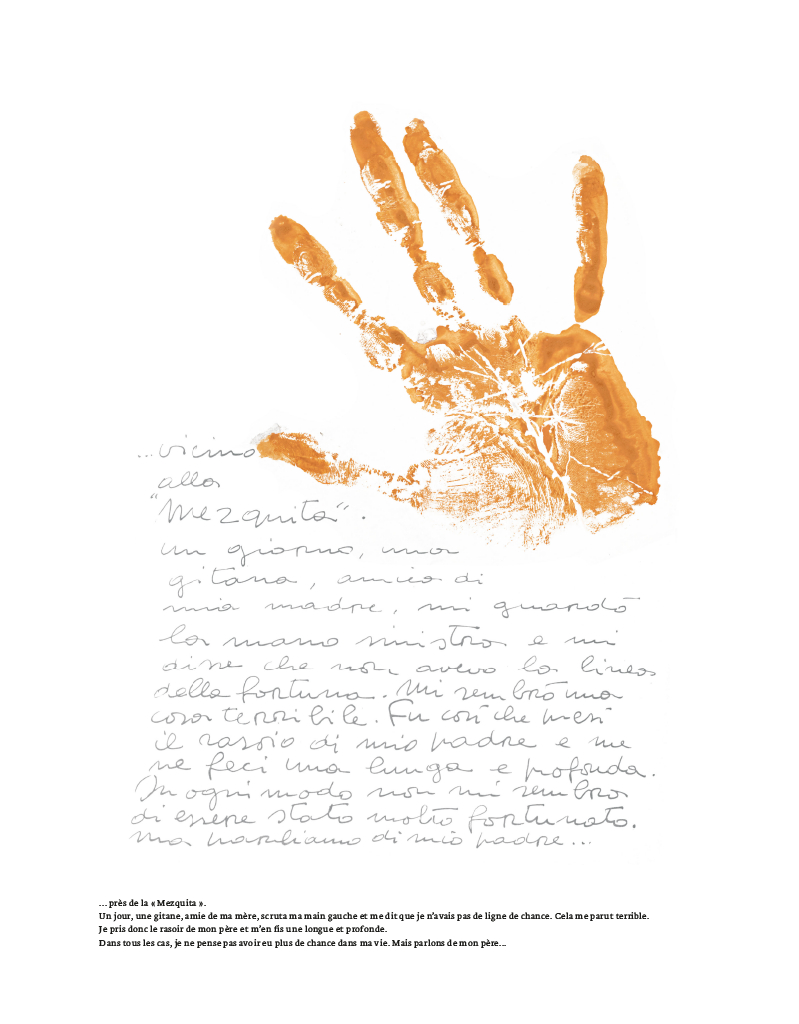 ...vicino
alla
"Mezquita".
un giorno, una
gitana, amica di
mia madre, mi guardò
la mano sinistra e mi
disse che non avevo la linea
della fortuna. Mi sembrò una
cosa terribile. Fu così che presi
il rasoio di mio padre e me
ne feci una lunga e profonda.
In ogni modo non mi sembra
di essere stato molto fortunato.
Ma parliamo di mio padre...
... près de la « Mezquita ».
Un jour, une gitane, amie de ma mère, scruta ma main gauche et me dit que je n'avais pas de ligne de chance. Cela me parut terrible.
Je pris donc le rasoir de mon père et m'en fis une longue et profonde.
Dans tous les cas, je ne pense pas avoir eu plus de chance dans ma vie. Mais parlons de mon père...